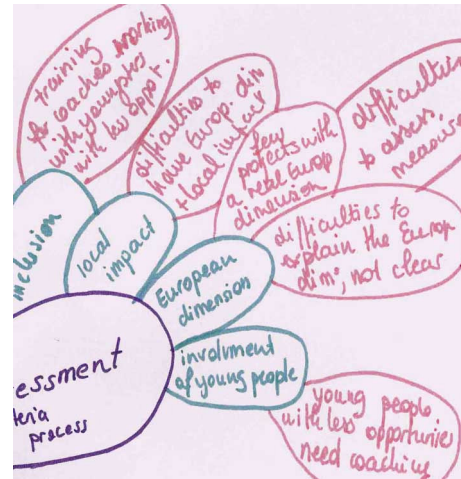 training
for coaches working
with youngsters
with less oppor.
difficulties to
have Europ. dim
+ local impact
few
projects with
a real Europ
dimension
difficulties
to assess,
measure
difficulties to
explain the Europ
dim°, not clear
inclusion
local
impact
European
dimension
involvment
of young people
essment
teria
process
young people
with less opportunities
need coaching